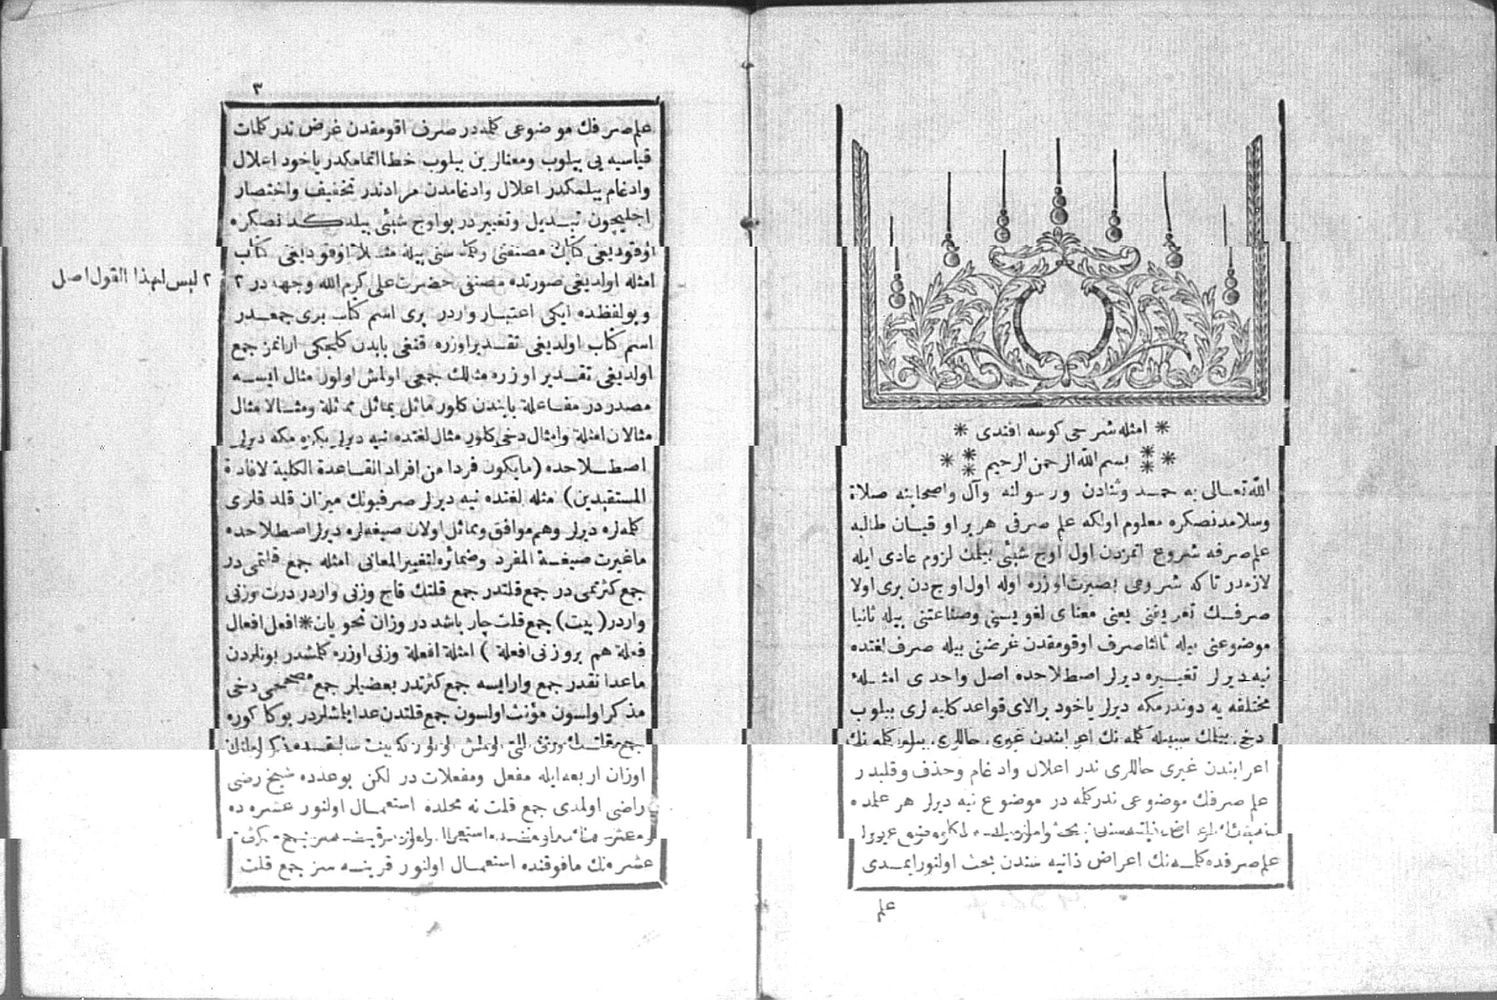 ✳ امثله شرحی کوسه افندی ✳
✳ ✳✳ بسم الله الرحمن الرحیم ✳✳ ✳
الله تعالی یه حمد وثنادن ورسولنه وآل واصحابنه صلاة
وسلامدنصکره معلوم اولکه علم صرفی هر بر اوقیان طالبه
علم صرفه شروع ایتمزدن اول اوچ شیئی بیلمك لزوم عادی ایله
لازمدر تاکه شروعی بصیرت اوزره اوله اول اوچ دن بری اولا
صرفك تعریفنی یعنی معنای لغویسنی وصناعتنی بیله ثانیا
موضوعنی بیله ثالثا صرف اوقومقدن غرضنی بیله صرف لغتده
نیه دیرلر تغییره دیرلر اصطلاحده اصل واحدی امثله
مختلفه یه دوندرمکه دیرلر یاخود برالای قواعد کلیه لری بیلوب
دخی بیلمك سببیله کلمه نك اعرابندن غیری حاللری بیلور کلمه نك
اعرابندن غیری حاللری ندر اعلال وادغام وحذف وقلبدر
علم صرفك موضوعی ندر کلمه در موضوع نیه دیرلر هر علمده
علم صرفده کلمه نك اعراض ذاتیه سندن بحث اولنور ایمدی
علم
٣
علم صرفك موضوعی کلمه در صرف اوقومقدن غرض ندر کلمات
قیاسیه یی بیلوب ومعنالرین بیلوب خطا ایتمامکدر یاخود اعلال
وادغام بیلمکدر اعلال وادغامدن مرادندر تخفیف واختصار
اجلیچون تبدیل وتغییر در بواوچ شیئی بیلدکدنصکره
اوقودیغی کتابك مصنفنی رحمه سنی بیله مثلا اوقودیغی کتاب
امثله اولدیغی صورتده مصنفی حضرت علی کرم الله وجهه در ٢
وبولفظده ایکی اعتبار واردر بری اسم کتاب بری جمعدر
اسم کتاب اولدیغی تقدیر اوزره قنغی بابدن کلیجکی ارانمز جمع
اولدیغی تقدیر اوزره مثالك جمعی اولمش اولور مثال ایسه
مصدر در مفاعلة بابندن کلور ماثل یماثل مماثلة ومثالا مثال
مثالان امثلة وامثال دخی کلور مثال لغتده نیه دیرلر بکزه مکه دیرلر
اصطلاحده (مایکون فردا من افراد القاعدة الکلیة لافادة
المستفیدین) مثله لغتده نیه دیرلر صرفیونك میزان قلد قلری
کلمه لره دیرلر وهم موافق ومماثل اولان صیغه لره دیرلر اصطلاحده
ماغیرت صیغة المفرد وضمائره لتغییر المعانی امثله جمع قلتمی در
جمع کثرتمی در جمع قلتدر جمع قلتك قاچ وزنی واردر درت وزنی
واردر (بیت) جمع قلت چار باشد در وزان نحویان✳افعل افعال
فعلة هم بروزنی افعلة) امثلة افعلة وزنی اوزره کلمشدر بونلردن
ماعدا نقدر جمع وار ایسه جمع کثرتدر بعضیلر جمع مصححی دخی
مذکر اولسون مؤنث اولسون جمع قلتدن عدا یلشلردر بوکا کوره
اوزان اربعه ایله مفعل ومفعلات در لکن بوعدده شیخ رضی
راضی اولمدی جمع قلت نه محلده استعمال اولنور عشره ده
عشره نك مافوقنده استعمال اولنور قرینه سز جمع قلت
٢ لیس لهذا القول اصل